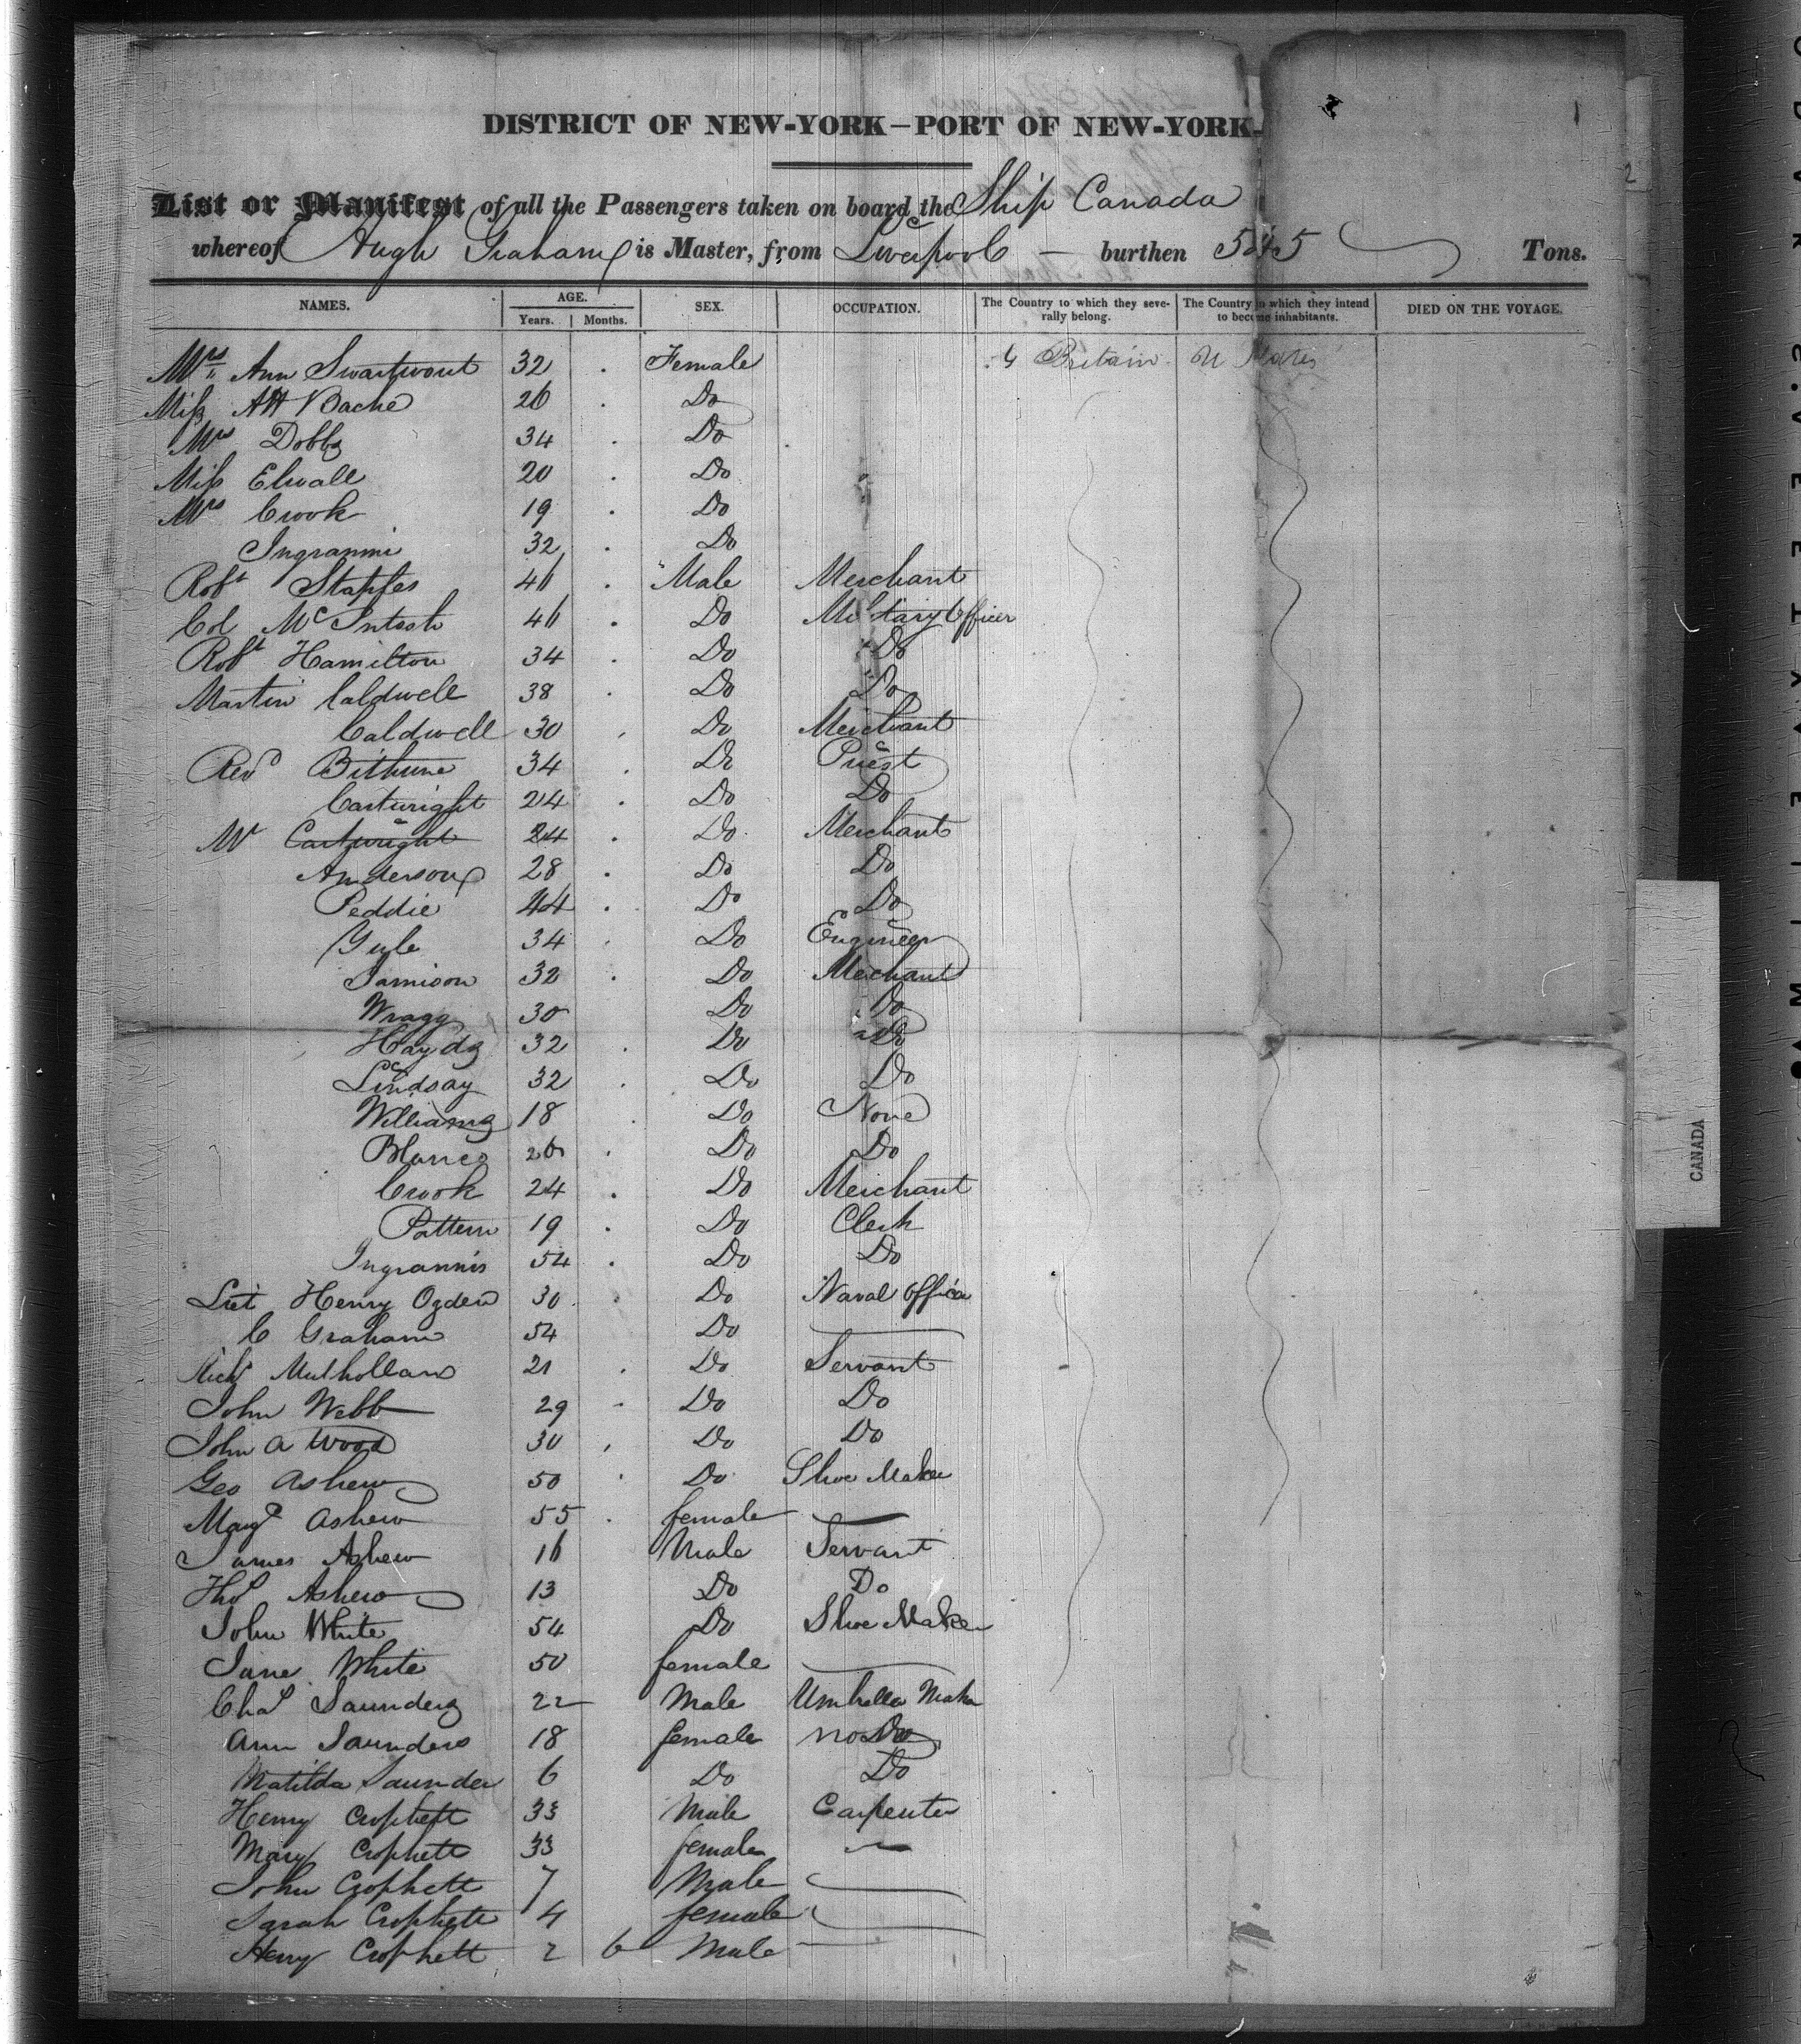 DISTRICT OF NEW-YORK—PORT OF NEW-YORK.
List or Manifest of all the Passengers taken on board the Ship Canada
whereof Hugh Graham is Master, from Liverpool — burthen 545 Tons.
NAMES. AGE. Years. Months. SEX. OCCUPATION. The Country to which they severally belong. The Country to which they intend to become inhabitants. DIED ON THE VOYAGE.
Mrs Ann Swartwout 32 Female G Britain U States
Miss AH Bache 26 Do
Mrs Dobbs 34 Do
Miss Elwall 20 Do
Mrs Crook 19 Do
Ingrannis 32 Do
Robt Staples 46 Male Merchant
Col McIntosh 46 Do Military Officer
Robt Hamilton 34 Do Do
Martin Caldwell 38 Do Do
Caldwell 30 Do Merchant
Revd Bithune 34 Do Priest
Cartwright 24 Do Do
Mr Cartwright 24 Do Merchant
Anderson 28 Do Do
Peddie 44 Do Do
Yule 34 Do Engineer
Jamison 32 Do Merchant
Wragg 30 Do Do
Hayds 32 Do Do
Lindsay 32 Do Do
Williams 18 Do None
Blanco 26 Do Do
Crook 24 Do Merchant
Pattern 19 Do Clerk
Ingrannis 54 Do Do
Liet Henry Ogden 30 Do Naval Officer
C Graham 54 Do
Richd Mulholland 21 Do Servant
John Webb 29 Do Do
John A Wood 30 Do Do
Geo Ashew 50 Do Shoe Maker
Margt Ashew 55 female
James Ashew 16 Male Servant
Thos Ashew 13 Do Do
John White 54 Do Shoe Maker
Jane White 50 female
Chas Saunders 22 Male Umbrella Maker
Ann Saunders 18 female no Do
Matilda Saunder 6 Do Do
Henry Crophett 33 Male Carpenter
Mary Crophett 33 female
John Crophett 7 Male
Sarah Crophett 4 female
Henry Crophett 2 6 Male
CANADA